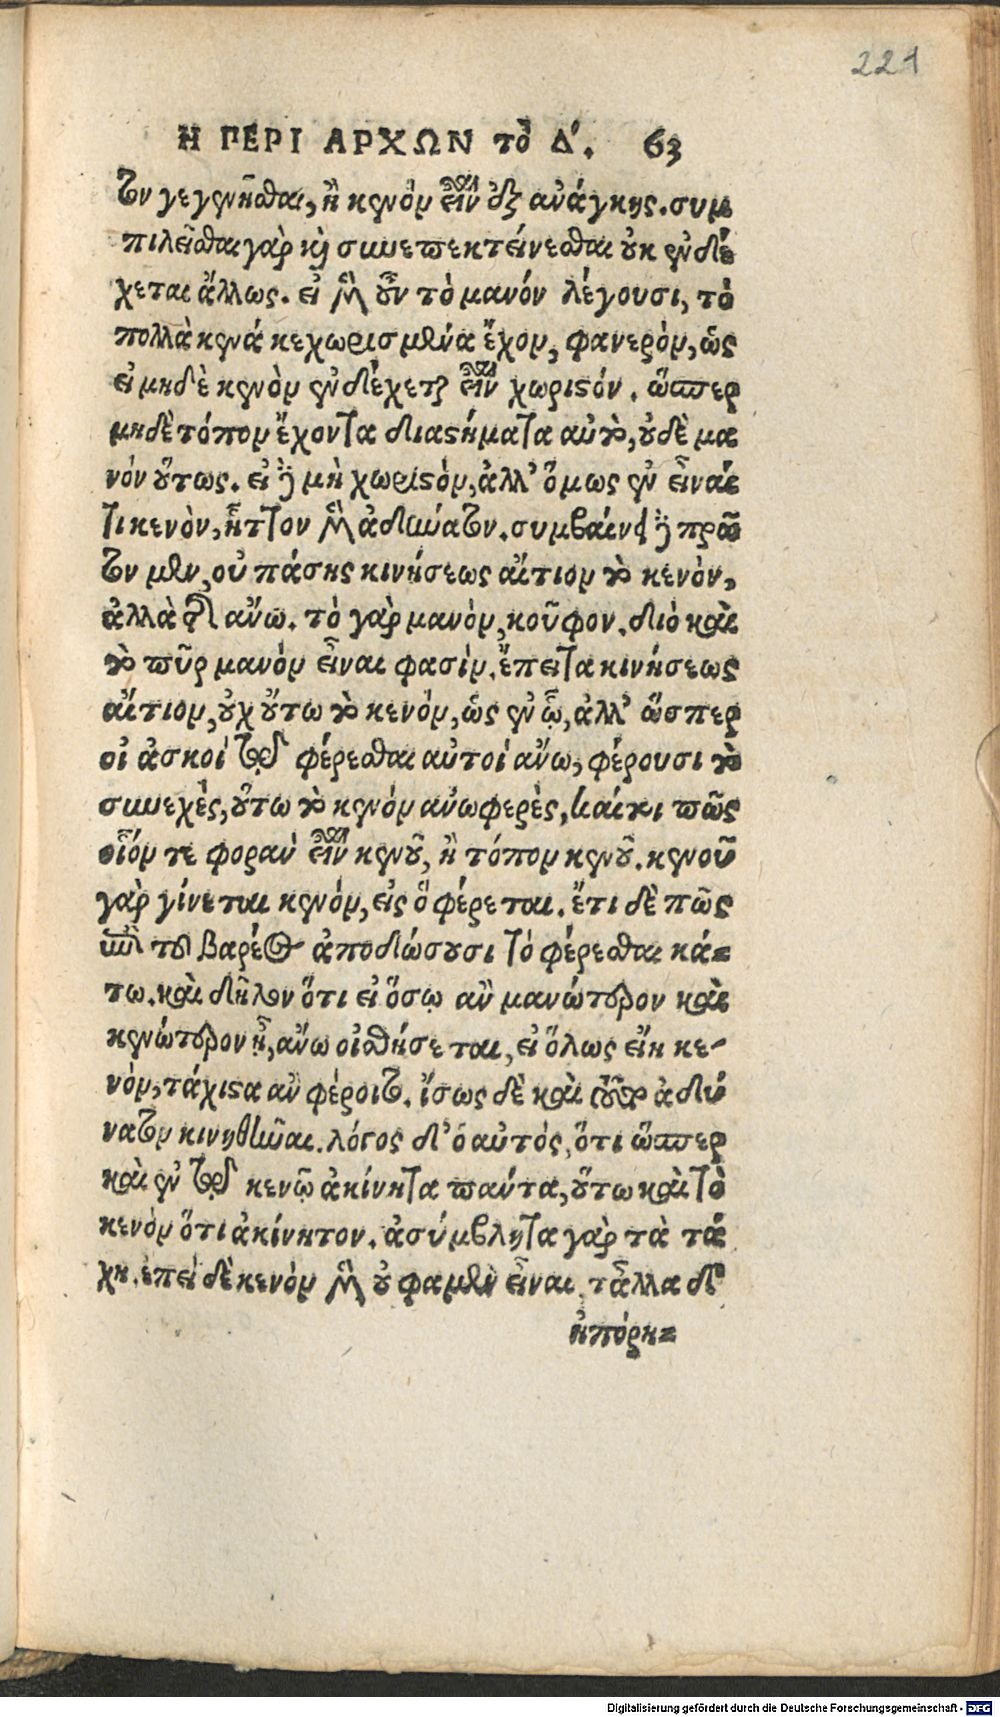 221
Η ΠΕΡΙ ΑΡΧΩΝ τὸ Δ΄. 63
τον γεγενῆσθαι, ἢ κενὸν εἶναι ἐξ ἀνάγκης. συμ
πιλεῖσθαι γὰρ καὶ συνεπεκτείνεσθαι οὐκ ἐνδέ
χεται ἄλλως. εἰ μὲν οὖν τὸ μανόν λέγουσι, τὸ
πολλὰ κενά κεχωρισμένα ἔχον, φανερὸν, ὡς
εἰ μηδὲ κενὸν ἐνδέχεται εἶναι χωριστόν. ὥσπερ
μηδὲ τόπον ἔχοντα διαστήματα αὐτοῦ, οὐδὲ μα
νὸν οὕτως. εἰ δὲ μὴ χωριστὸν, ἀλλ' ὅμως ἐν εἶναί
τι κενὸν, ἧττον μὲν ἀδύνατον. συμβαίνει δὲ πρῶ
τον μὲν, οὐ πάσης κινήσεως αἴτιον τὸ κενὸν,
ἀλλὰ τῆς ἄνω. τὸ γὰρ μανὸν, κοῦφον. διὸ καὶ
τὸ πῦρ μανὸν εἶναι φασὶν. ἔπειτα κινήσεως
αἴτιον, οὐχ οὕτω τὸ κενὸν, ὡς ἐν ᾧ, ἀλλ' ὥσπερ
οἱ ἀσκοὶ τῷ φέρεσθαι αὐτοὶ ἄνω, φέρουσι τὸ
συνεχὲς, οὕτω τὸ κενὸν ἀνωφερὲς, καίτοι πῶς
οἷόν τε φορὰν εἶναι κενοῦ, ἢ τόπον κενοῦ. κενοῦ
γὰρ γίνεται κενὸν, εἰς ὃ φέρεται. ἔτι δὲ πῶς
ἐπὶ τοῦ βαρέος ἀποδώσουσι τὸ φέρεσθαι κά=
τω. καὶ δῆλον ὅτι εἰ ὅσῳ ἂν μανώτερον καὶ
κενώτερον ᾖ, ἄνω οἰσθήσεται, εἰ ὅλως εἴη κε-
νὸν, τάχιστα ἂν φέροιτο. ἴσως δὲ καὶ τοῦτο ἀδύ
νατον κινηθῆναι. λόγος δ' ὁ αὐτὸς, ὅτι ὥσπερ
καὶ ἐν τῷ κενῷ ἀκίνητα πάντα, οὕτω καὶ τὸ
κενὸν ὅτι ἀκίνητον. ἀσύμβλητα γὰρ τὰ τά
χη. ἐπεὶ δὲ κενὸν μὲν οὐ φαμὲν εἶναι, τἆλλα δὲ
ἠπόρη=
Digitalisierung gefördert durch die Deutsche Forschungsgemeinschaft - DFG